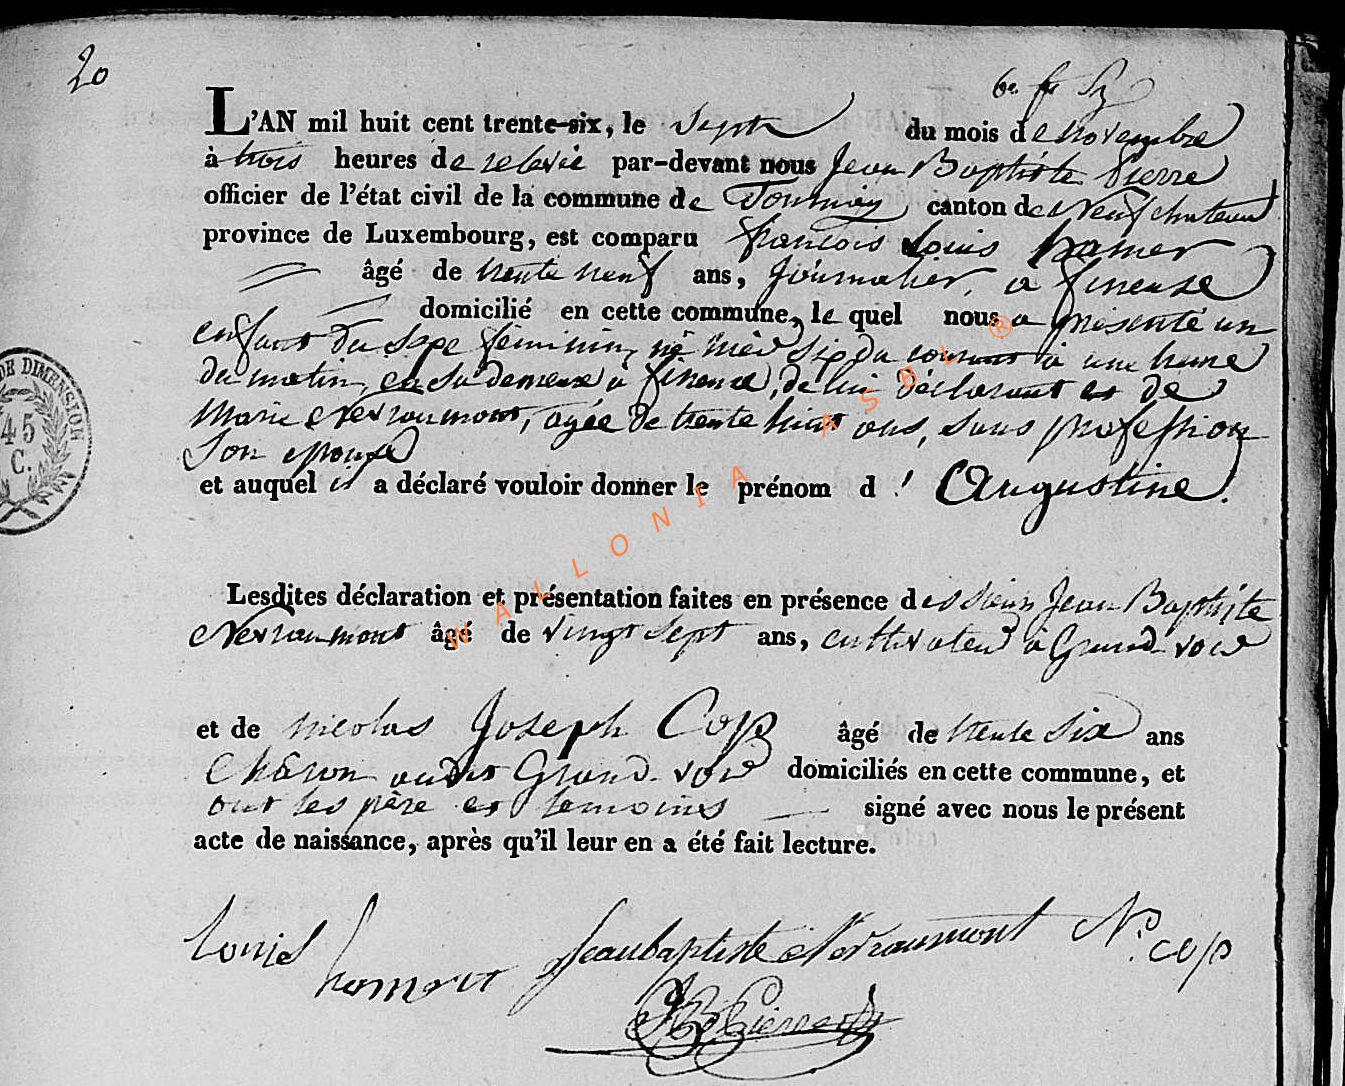 20
6e f
L'AN mil huit cent trente-six, le Sept du mois de novembre
à trois heures de relevée par-devant nous Jean Baptiste Pierre
officier de l'état civil de la commune de Tournay canton de Neufchateau
province de Luxembourg, est comparu françois Louis hamer
âgé de trente neuf ans, Journalier, à fineuse
domicilié en cette commune, le quel nous a présenté un
enfant du Sexe féminin, né hier Six du courant à une heure
du matin, en Sa demeure à fineuse, de lui déclarant et de
Marie Nevraumont, agée de trente huit ans, Sans profession
Son épouse
et auquel il a déclaré vouloir donner le prénom d' Augustine.
Lesdites déclaration et présentation faites en présence des Sieurs Jean Baptiste
Nevraumont âgé de vingt Sept ans, cultivateur à Grand-voir
et de Nicolas Joseph Cop âgé de trente Six ans
Charon audit Grand-voir domiciliés en cette commune, et
ont les père et temoins signé avec nous le présent
acte de naissance, après qu'il leur en a été fait lecture.
Louis hamert Jeanbaptiste Nevraumont N. cop
JB Pierre
DE DIMENSION
45
C.
WALLONIA ASBL ®